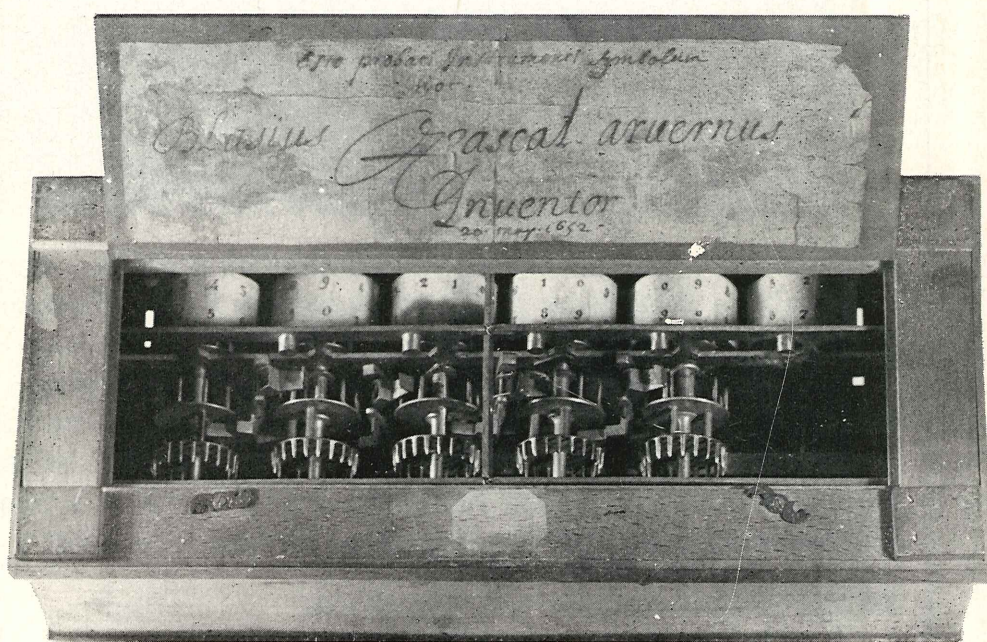 Esto probati Instrumenti Symbolum
hoc.
Blasius Pascal aruernus
Inuentor
20 may 1652
4 3 9 2 1 1 0 0 9 2
5 0 8 9 9 0 7